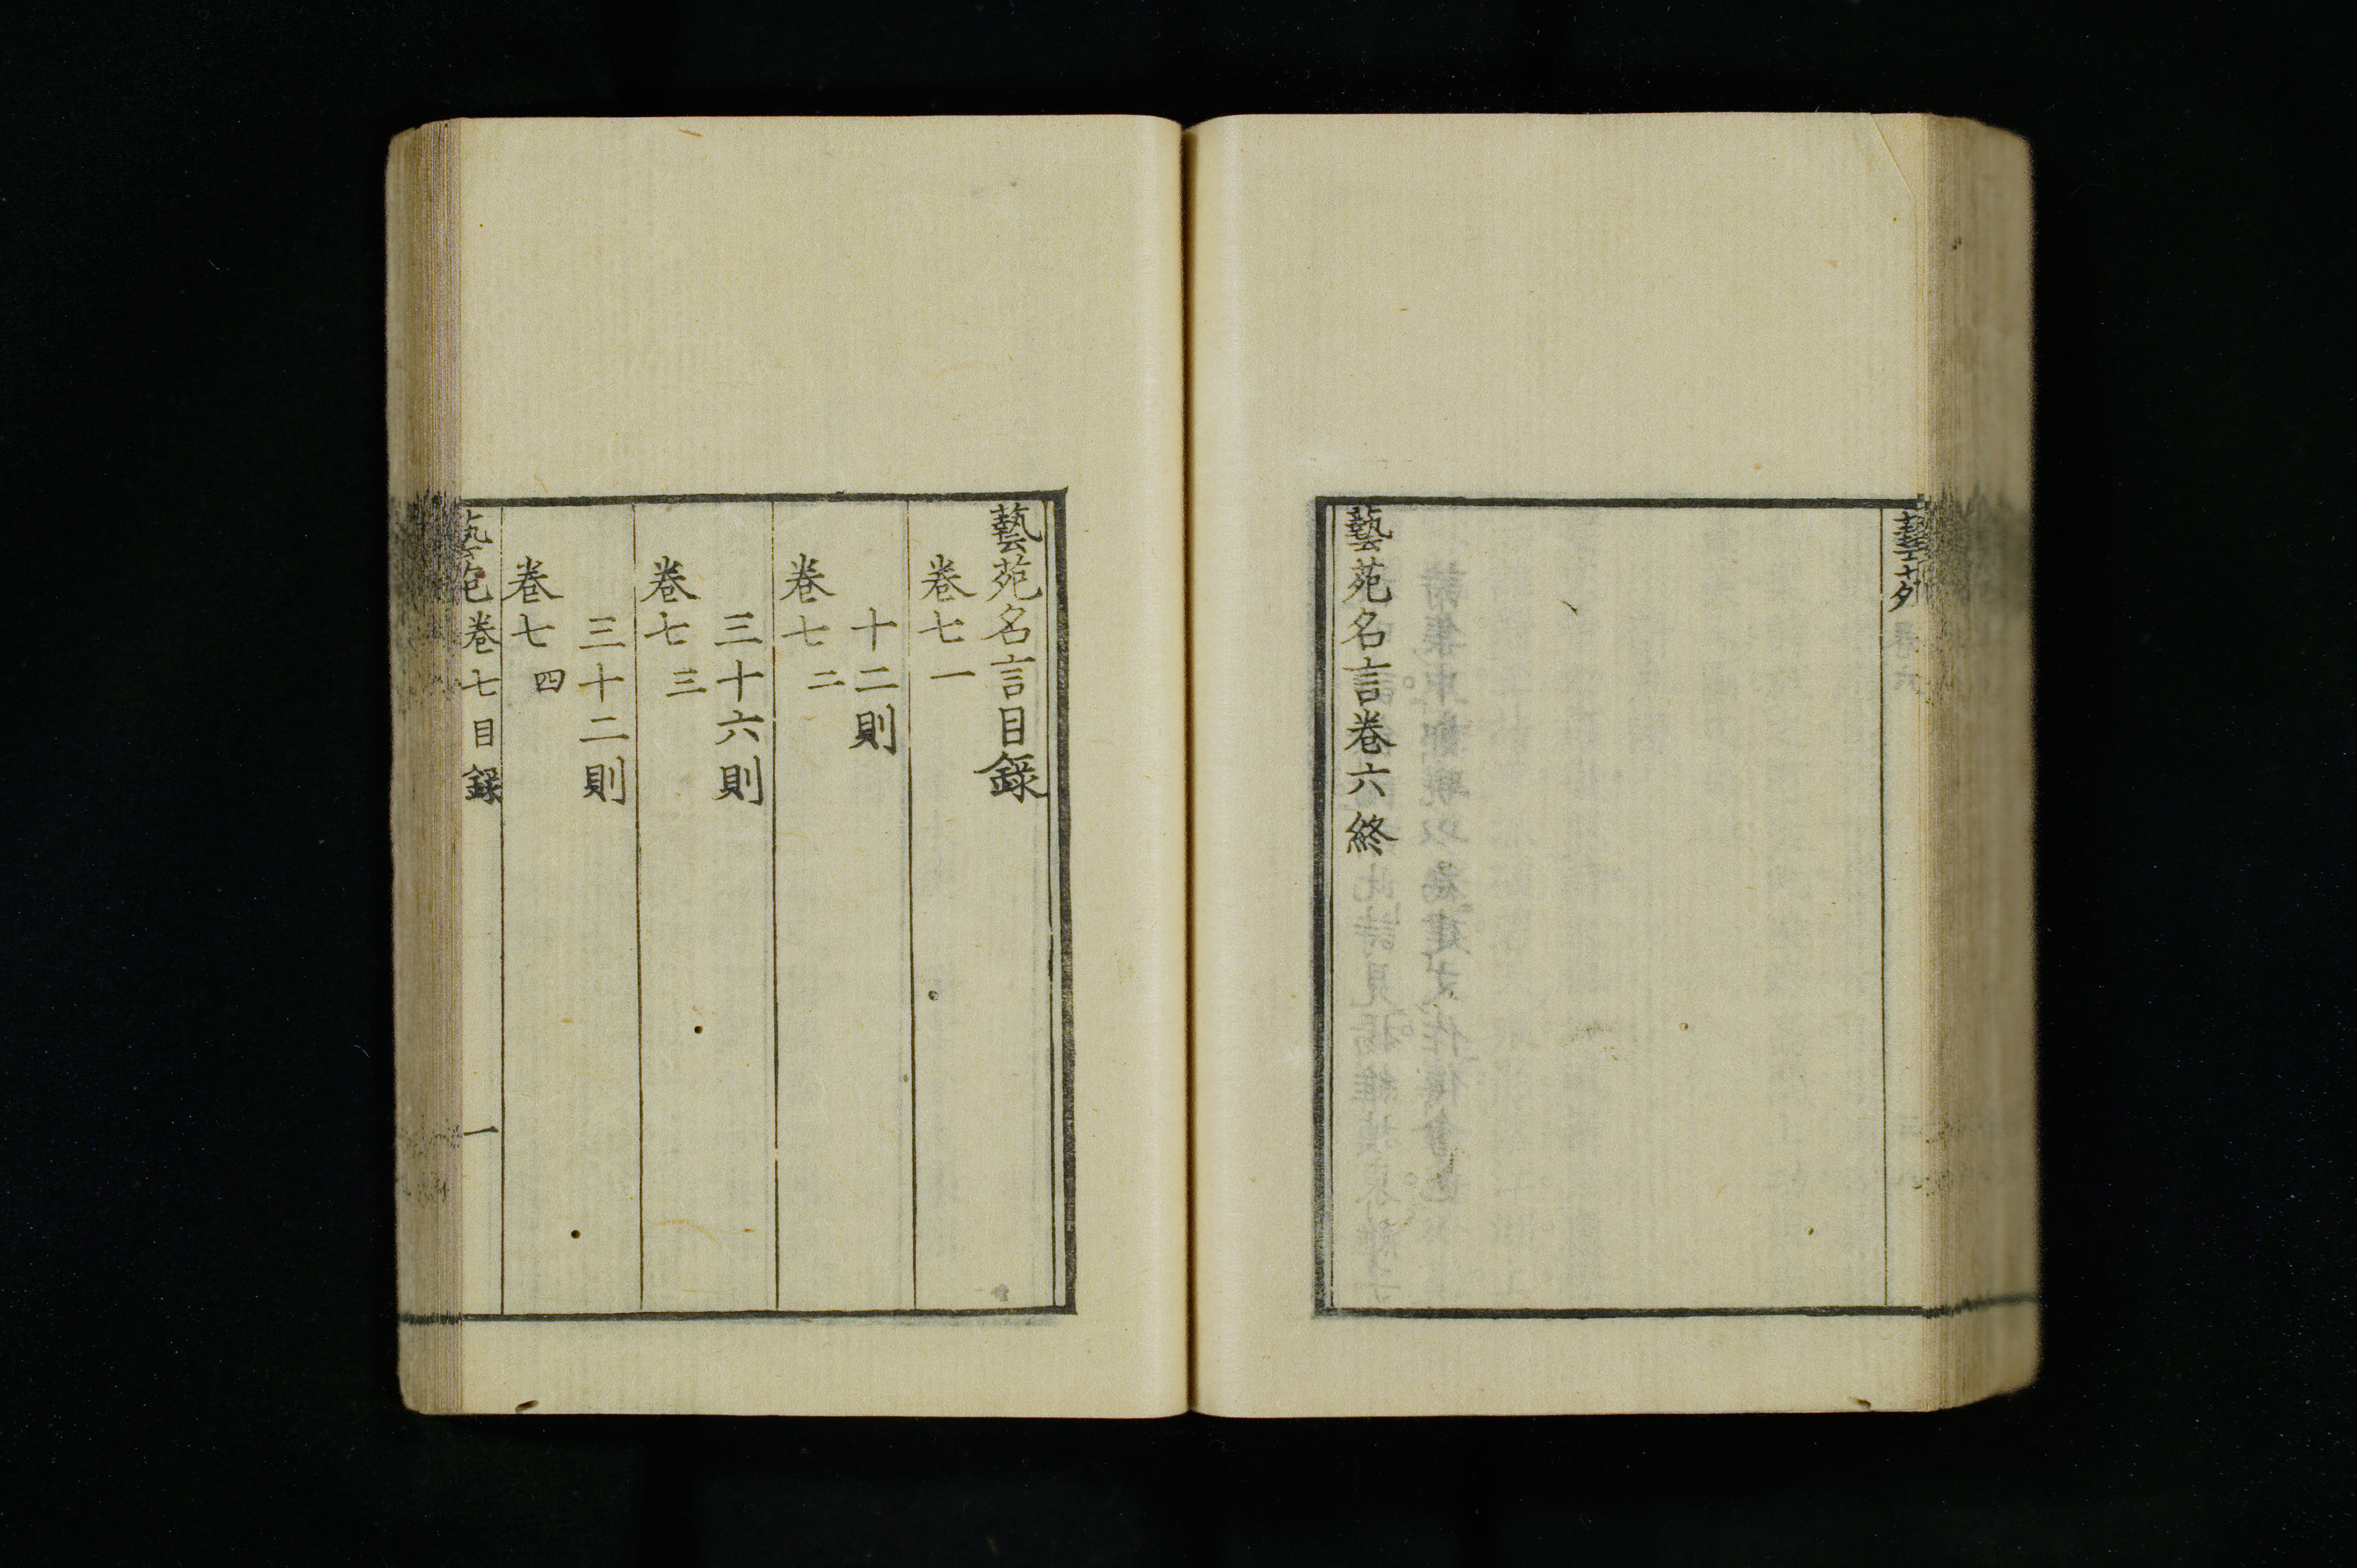 藝苑名言卷六終
藝苑名言目錄
卷七一
十二則
卷七二
三十六則
卷七三
三十二則
卷七四
藝苑卷七目錄 一